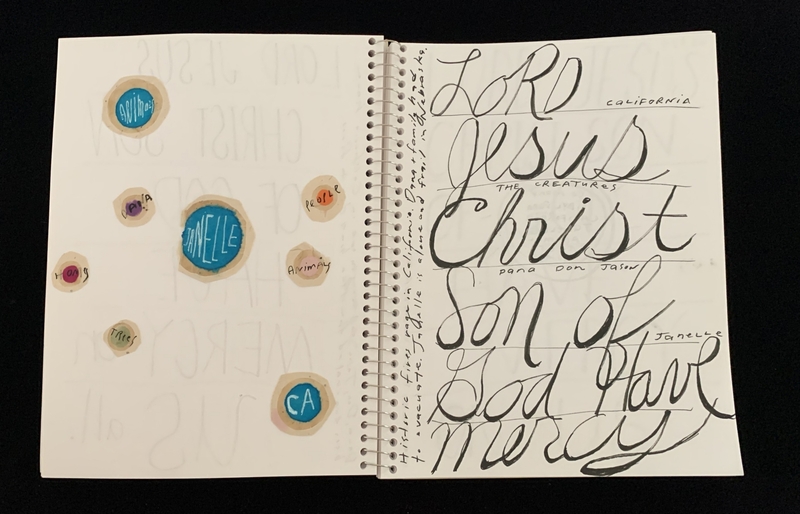 ANIMALS
DANA
PEOPLE
JANELLE
HOMES
ANIMALS
TREES
CA
Historic fires rage in California. Dana + family had
to evacuate. Janelle is alone and frail in Nebraska.
LORD
CALIFORNIA
Jesus
THE CREATURES
Christ
Dana Don Jason
Son of
Janelle
God Have
mercy